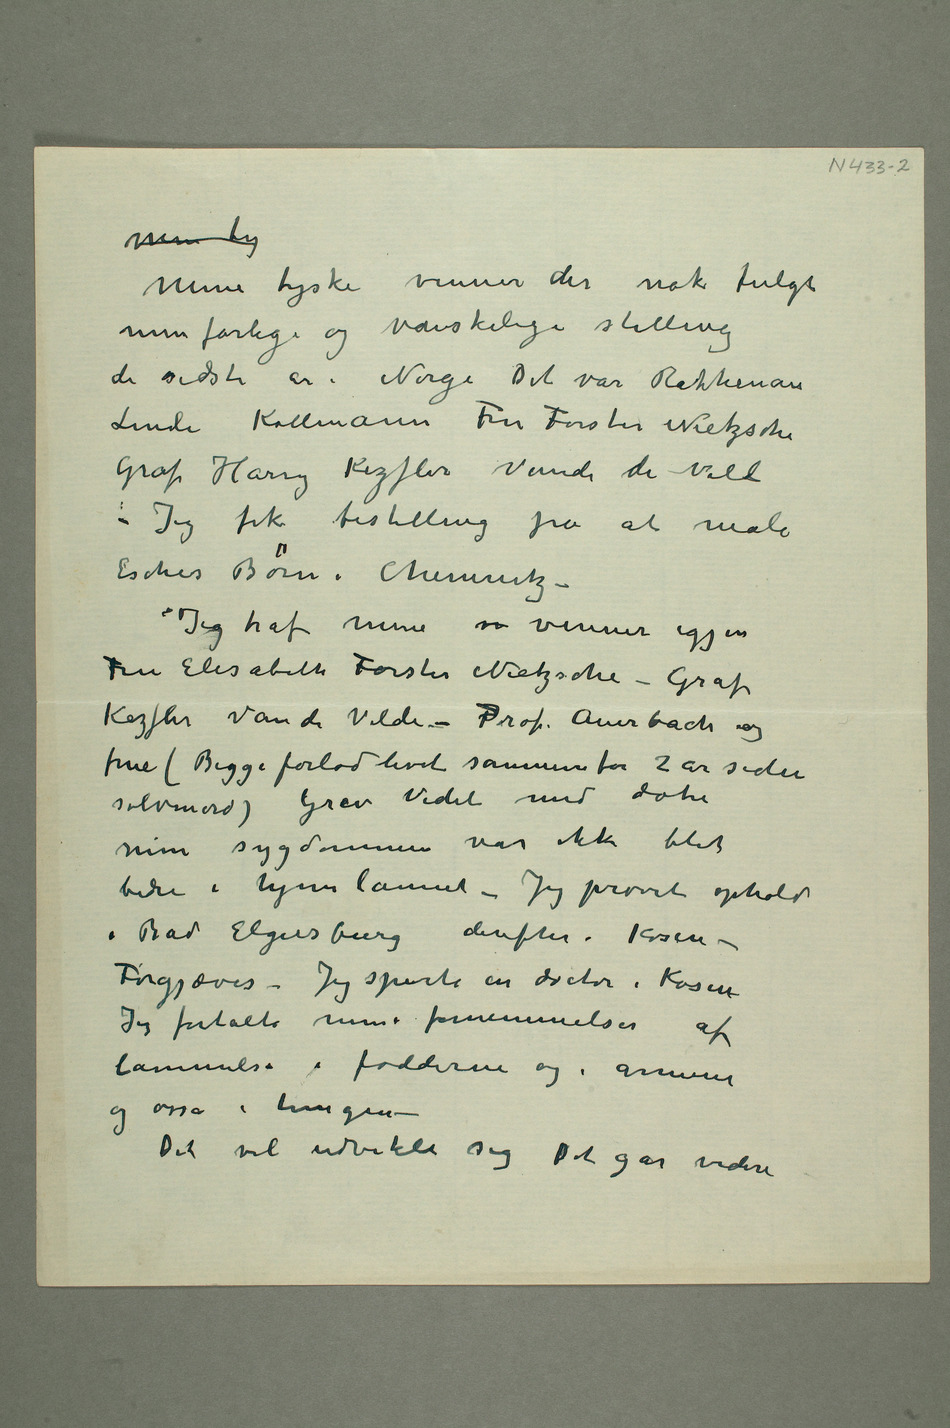 N 433-2
Mine ty
Mine tyske venner der nok fulgt
min farlige og vanskelige stilling
de sidste år i Norge Det var Rathenau
Linde Kollmann Fru Forster Nietzsche
Graf Harry Kezfler Vande de Veld
– Jeg fik bestilling på at male
Esches Børn i Chemnitz –
Jeg traf mine ve venner igjen
Fru Elisabeth Forster Nietzsche – Graf
Kezfler Van de Velde – Prof. Auerbach og
frue (Begge forlod livet sammen for 2 år siden
selvmord) Grev Vedel med døtre
min sygdommen var ikke blet
bedre i hjemlannet – Jeg prøvet ophold
i Bad Elgersburg derefter i Kösen –
Forgjæves – Jeg spurte en doctor i Kosen
Jeg fortalte mine fornemmelser af
lammelse i fødderne og i armene
og osså i tungen –
Det vil udvikle sig Det går videre